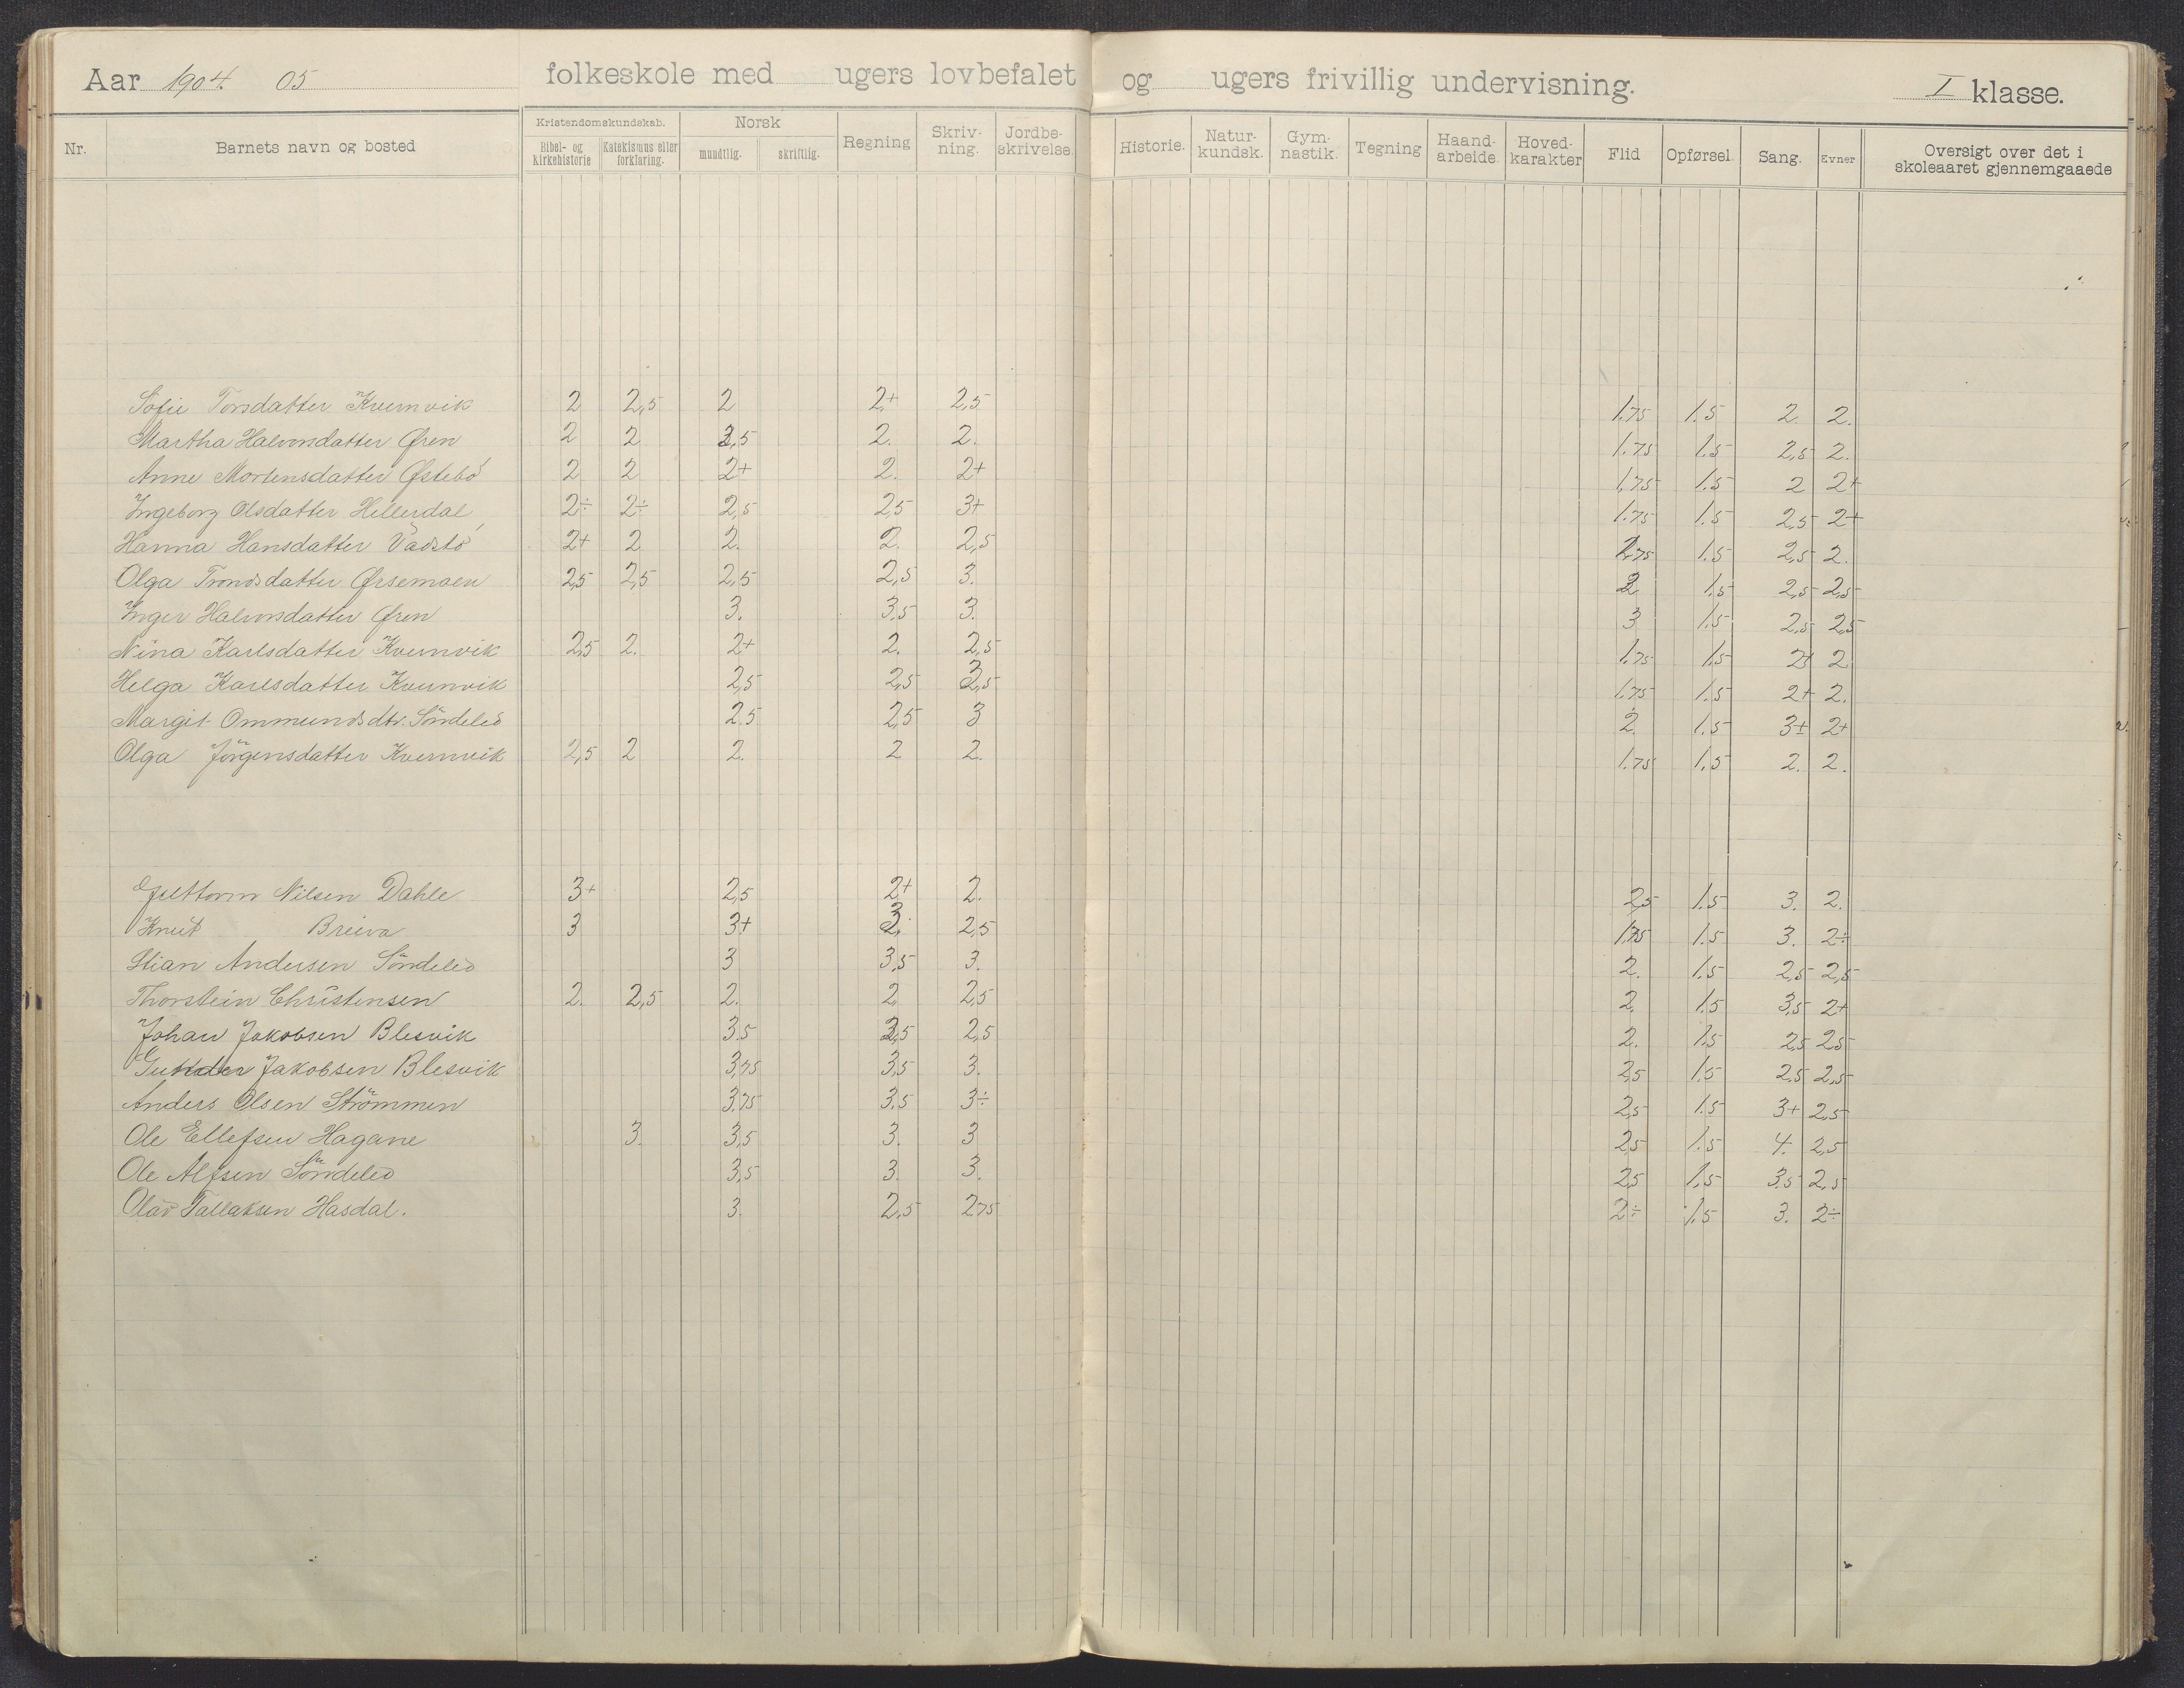 Aar 1904. 05 folkeskole med ugers lovbefalet og ugers frivillig undervisning. I klasse.
Nr. Barnets navn og bosted Kristendomskundskab. Bibel- og Kirkehistorie Katekismus eller forklaring. Norsk mundtlig. skriftlig. Regning Skriv- ning. Jordbe- skrivelse. Historie. Natur- kundsk. Gym- nastik. Tegning Haand- arbeide. Hoved- karakter Flid Opførsel. Sang. Evner Oversigt over det i skoleaaret gjennemgaaede
Sofie Torsdatter Kvernvik 2 2,5 2 2+ 2,5 1.75 1.5 2. 2.
Martha Halvorsdatter Øren 2 2 2,5 2. 2. 1.75 1.5 2,5 2.
Anne Mortensdatter Østebö 2 2 2+ 2. 2+ 1,75 1.5 2 2+
Ingeborg Olsdatter Hellerdal 2÷ 2÷ 2,5 2,5 3+ 1.75 1.5 2,5 2+
Hanna Hansdatter Vadstö 2+ 2 2. 2. 2,5 1.75 1.5 2,5 2.
Olga Trondsdatter Ørsemoen 2,5 2,5 2,5 2,5 3. 2 1.5 2,5 2,5
Inger Halvorsdatter Øren 3. 3.5 3. 3 1.5 2,5 2,5
Nina Karlsdatter Kvernvik 2,5 2. 2+ 2. 2,5 1.75 1.5 2+ 2
Helga Karlsdatter Kvernvik 2,5 2,5 2,5 1.75 1.5 2+ 2.
Margit Ommundsdtr. Söndeled 2.5 2,5 3 2. 1.5 3± 2+
Olga Jörgensdatter Kvernvik 2,5 2 2. 2 2. 1.75 1.5 2. 2.
Guttorm Nilsen Dahle 3+ 2,5 2+ 2. 2,5 1.5 3. 2.
Knut Breiva 3 3+ 3. 2,5 1.75 1.5 3. 2÷
Stian Andersen Söndeled 3 3,5 3. 2. 1.5 2,5 2,5
Thorstein Christensen 2. 2,5 2. 2 2,5 2. 1.5 3,5 2+
Johan Jakobsen Blesvik 3.5 3,5 2,5 2. 1.5 2,5 2.5
Gunder Jakobsen Blesvik 3,75 3,5 3. 2,5 1.5 2.5 2,5
Anders Olsen Strömmen 3.75 3.5 3÷ 2,5 1.5 3+ 2,5
Ole Ellefsen Hagane 3. 3,5 3. 3 2,5 1.5 4. 2,5
Ole Alfsen Söndeled 3,5 3. 3. 2,5 1.5 3.5 2.5
Olav Tallaksen Hasdal. 3. 2,5 2,75 2÷ 1.5 3. 2÷